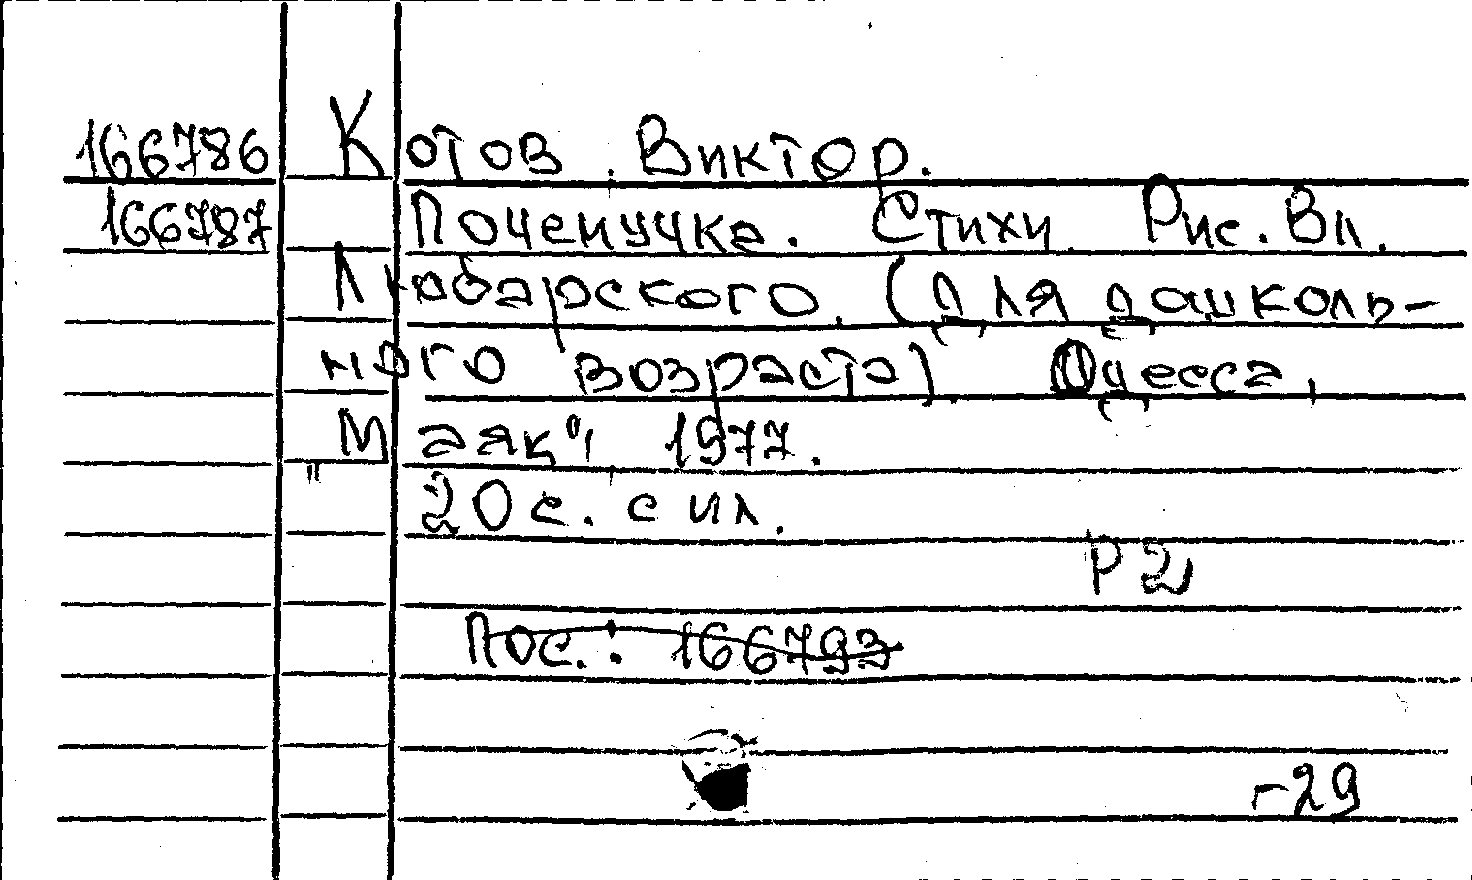 166786 Котов Виктор.
166787 Почемучка. Стихи. Рис. Вл.
Любарского. (Для дошколь-
ного возраста). Одесса,
"Маяк", 1977.
20 с. с ил.
Р2
Пос.: 166793
-29